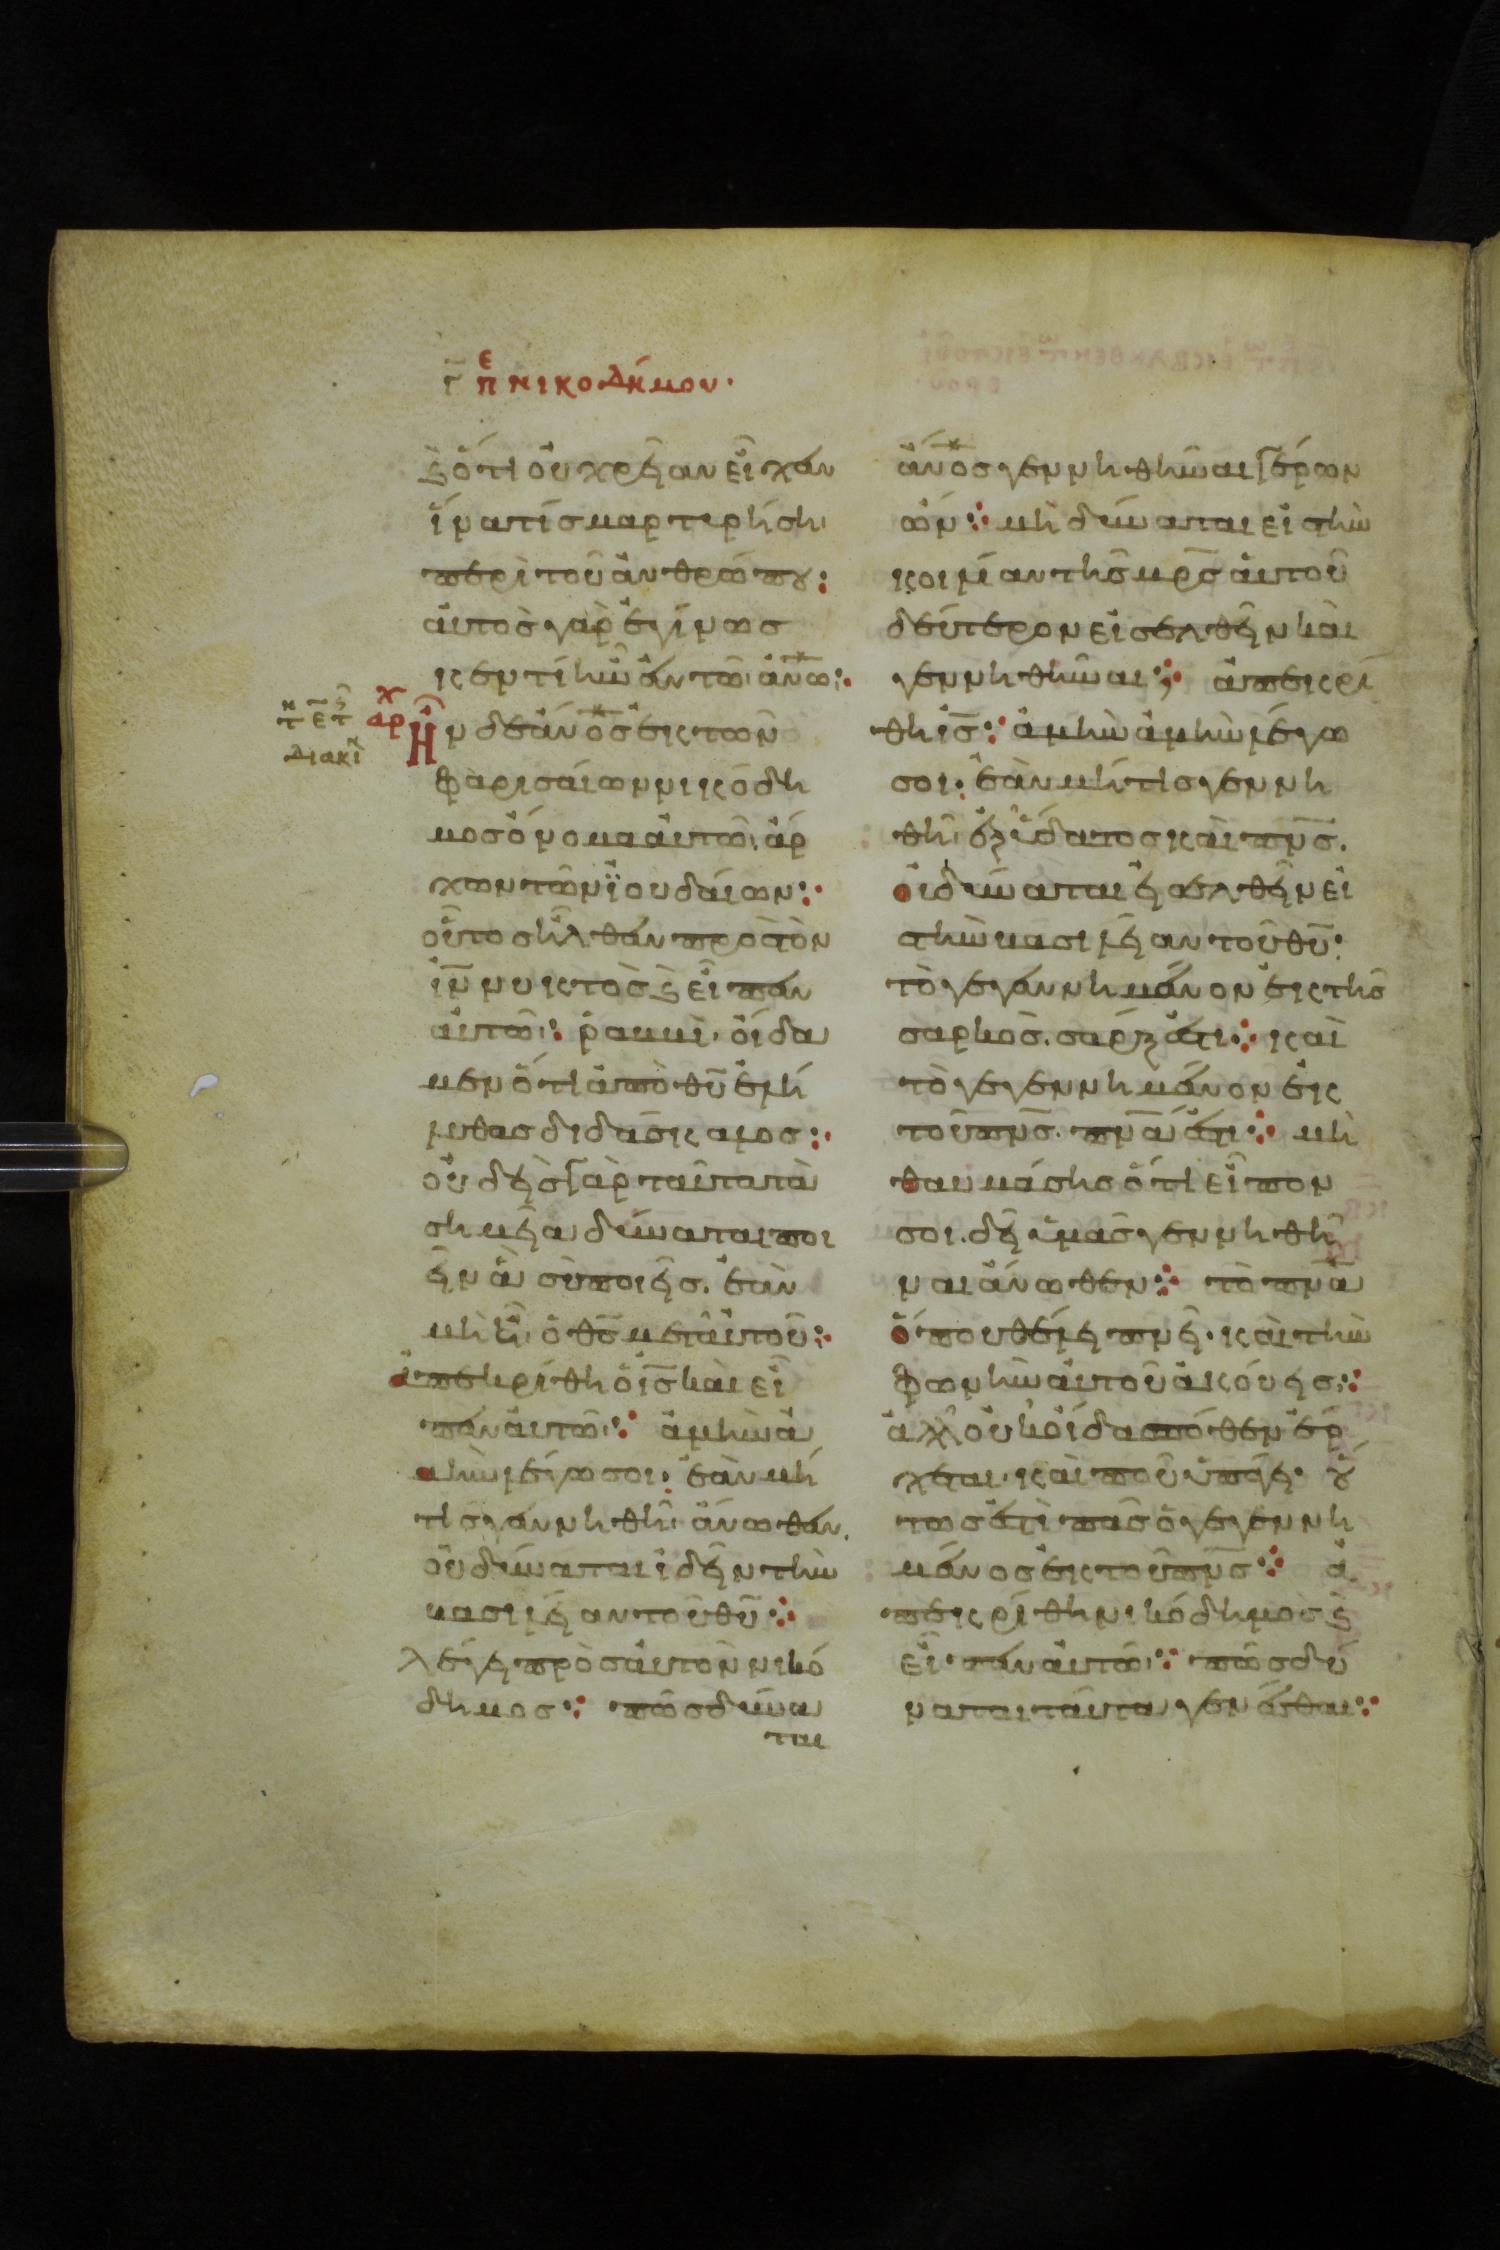 Γ̅ πε νικοδήμου·
ϗ ὅτι οὐ χρείαν εἶχεν
ἵνα τίς μαρτυρήση
περὶ τοῦ ἀνθρώπου:
αὐτὸς γὰρ ἐγίνωσ
κεν τί ἦν ἐν τῶ ἀνω:
αρχ
τη ε̅ τς
διακιν
Ἦν δὲ ἄνος ἐκ τῶν
φαρισαίων νικόδη
μος ὄνομα αὐτῶ. ἄρ
χων τῶν ϊουδαίων:
οὗτος ἦλθεν πρὸς τὸν
ιν νυκτὸς ϗ εἶπεν
αὐτῶ: ῥαββὶ. οἴδα
μεν ὅτι ἀπὸ θυ ἐλή
λυθας διδάσκαλος:
οὐδεὶς γὰρ ταῦτα τὰ
σημεῖα δύναται ποι
εῖν ἃ σὺ ποιεῖς. ἐὰν
μὴ ἦ ὁ θς μετ αὐτοῦ:
ἀπεκρίθη ὁ ις καὶ εἶ
πεν αὐτῶ: ἀμὴν ἀ
μὴν λέγω σοι. ἐὰν μή
τις γεννηθῆ ἄνωθεν.
οὐ δύναται ἰδεῖν τὴν
βασιλείαν τοῦ θυ:
λέγει πρὸς αὐτὸν νικό
δημος: πῶς δύνα
ται
ἄνος γεννηθῆναι γέρων
ὤν: μὴ δύναται εἰς τὴν
κοιλίαν τῆς μρς αὐτοῦ
δεύτερον εἰσελθεῖν καὶ
γεννηθῆναι; ἀπεκρί
θη ις: ἀμὴν ἀμὴν λέγω
σοι. ἐὰν μή τις γεννη
θῆ ἐξ ὕδατος καὶ πνς.
οὐ δύναται εἰσελθεῖν εἰς
τὴν βασιλείαν τοῦ θυ:
τὸ γεγεννημένον ἐκ τῆς
σαρκὸς. σάρξ ἐστι: καὶ
τὸ γεγεννημένον ἐκ
τοῦ πνς. πνα ἐστι: μὴ
θαυμάσης ὅτι εἶπον
σοι. δεῖ ὑμᾶς γεννηθῆ
ναι ἄνωθεν: τὸ πνα
ὅπου θέλει πνεῖ. καὶ τὴν
φωνὴν αὐτοῦ ἀκούεις:
ἀλλ οὐκ οἶδας πόθεν ἔρ
χεται. καὶ ποῦ ὑπάγει. οὕ
τως ἐστὶ πᾶς ὁ γεγεννη
μένος ἐκ τοῦ πνς: ἀ
πεκρίθη νικόδημος ϗ
εἶπεν αὐτῶ: πῶς δύ
ναται ταῦτα γενέσθαι: